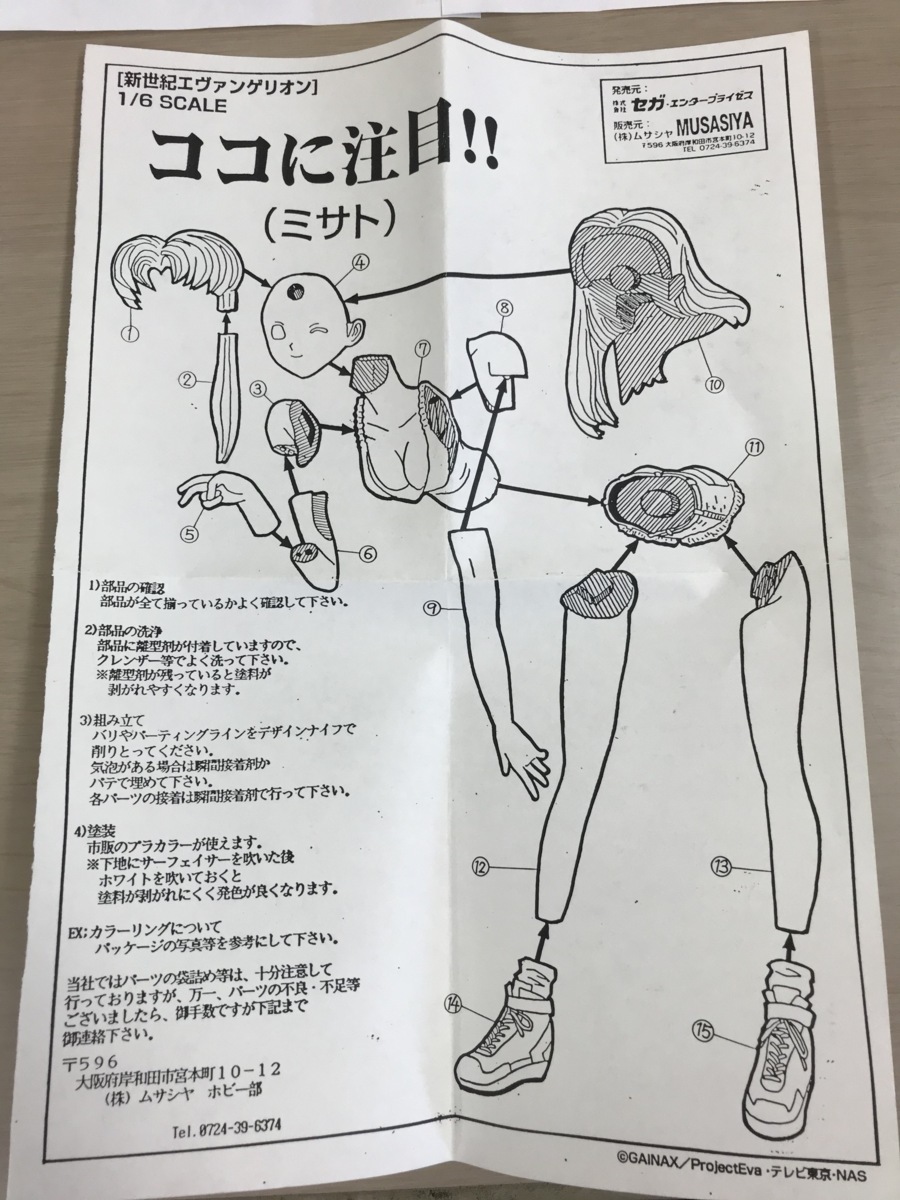 [新世紀エヴァンゲリオン]
1/6 SCALE
ココに注目!!
(ミサト)
発売元：
株式会社 セガ・エンタープライゼス
販売元：
(株)ムサシヤ MUSASIYA
〒596 大阪府岸和田市宮本町10-12
TEL 0724-39-6374
①
②
③
④
⑤
⑥
⑦
⑧
⑨
⑩
⑪
⑫
⑬
⑭
⑮
1)部品の確認
部品が全て揃っているかよく確認して下さい。
2)部品の洗浄
部品に離型剤が付着していますので、
クレンザー等でよく洗って下さい。
※離型剤が残っていると塗料が
剥がれやすくなります。
3)組み立て
バリやパーティングラインをデザインナイフで
削りとってください。
気泡がある場合は瞬間接着剤か
パテで埋めて下さい。
各パーツの接着は瞬間接着剤で行って下さい。
4)塗装
市販のプラカラーが使えます。
※下地にサーフェイサーを吹いた後
ホワイトを吹いておくと
塗料が剥がれにくく発色が良くなります。
EX;カラーリングについて
パッケージの写真等を参考にして下さい。
当社ではパーツの袋詰め等は、十分注意して
行っておりますが、万一、パーツの不良・不足等
ございましたら、御手数ですが下記まで
御連絡下さい。
〒596
大阪府岸和田市宮本町10-12
(株) ムサシヤ ホビー部
Tel.0724-39-6374
©GAINAX／ProjectEva・テレビ東京・NAS